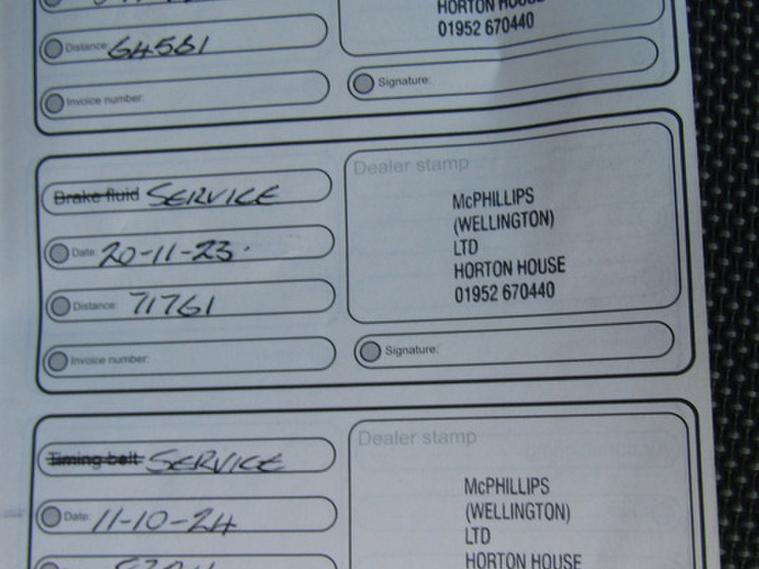 HORTON HOUSE
01952 670440
Distance: 64561
Signature:
Invoice number:
Dealer stamp
Brake fluid SERVICE
McPHILLIPS
(WELLINGTON)
LTD
HORTON HOUSE
01952 670440
Date: 20-11-23.
Distance: 71761
Invoice number:
Signature:
Dealer stamp
Timing belt SERVICE
McPHILLIPS
(WELLINGTON)
LTD
HORTON HOUSE
Date: 11-10-24